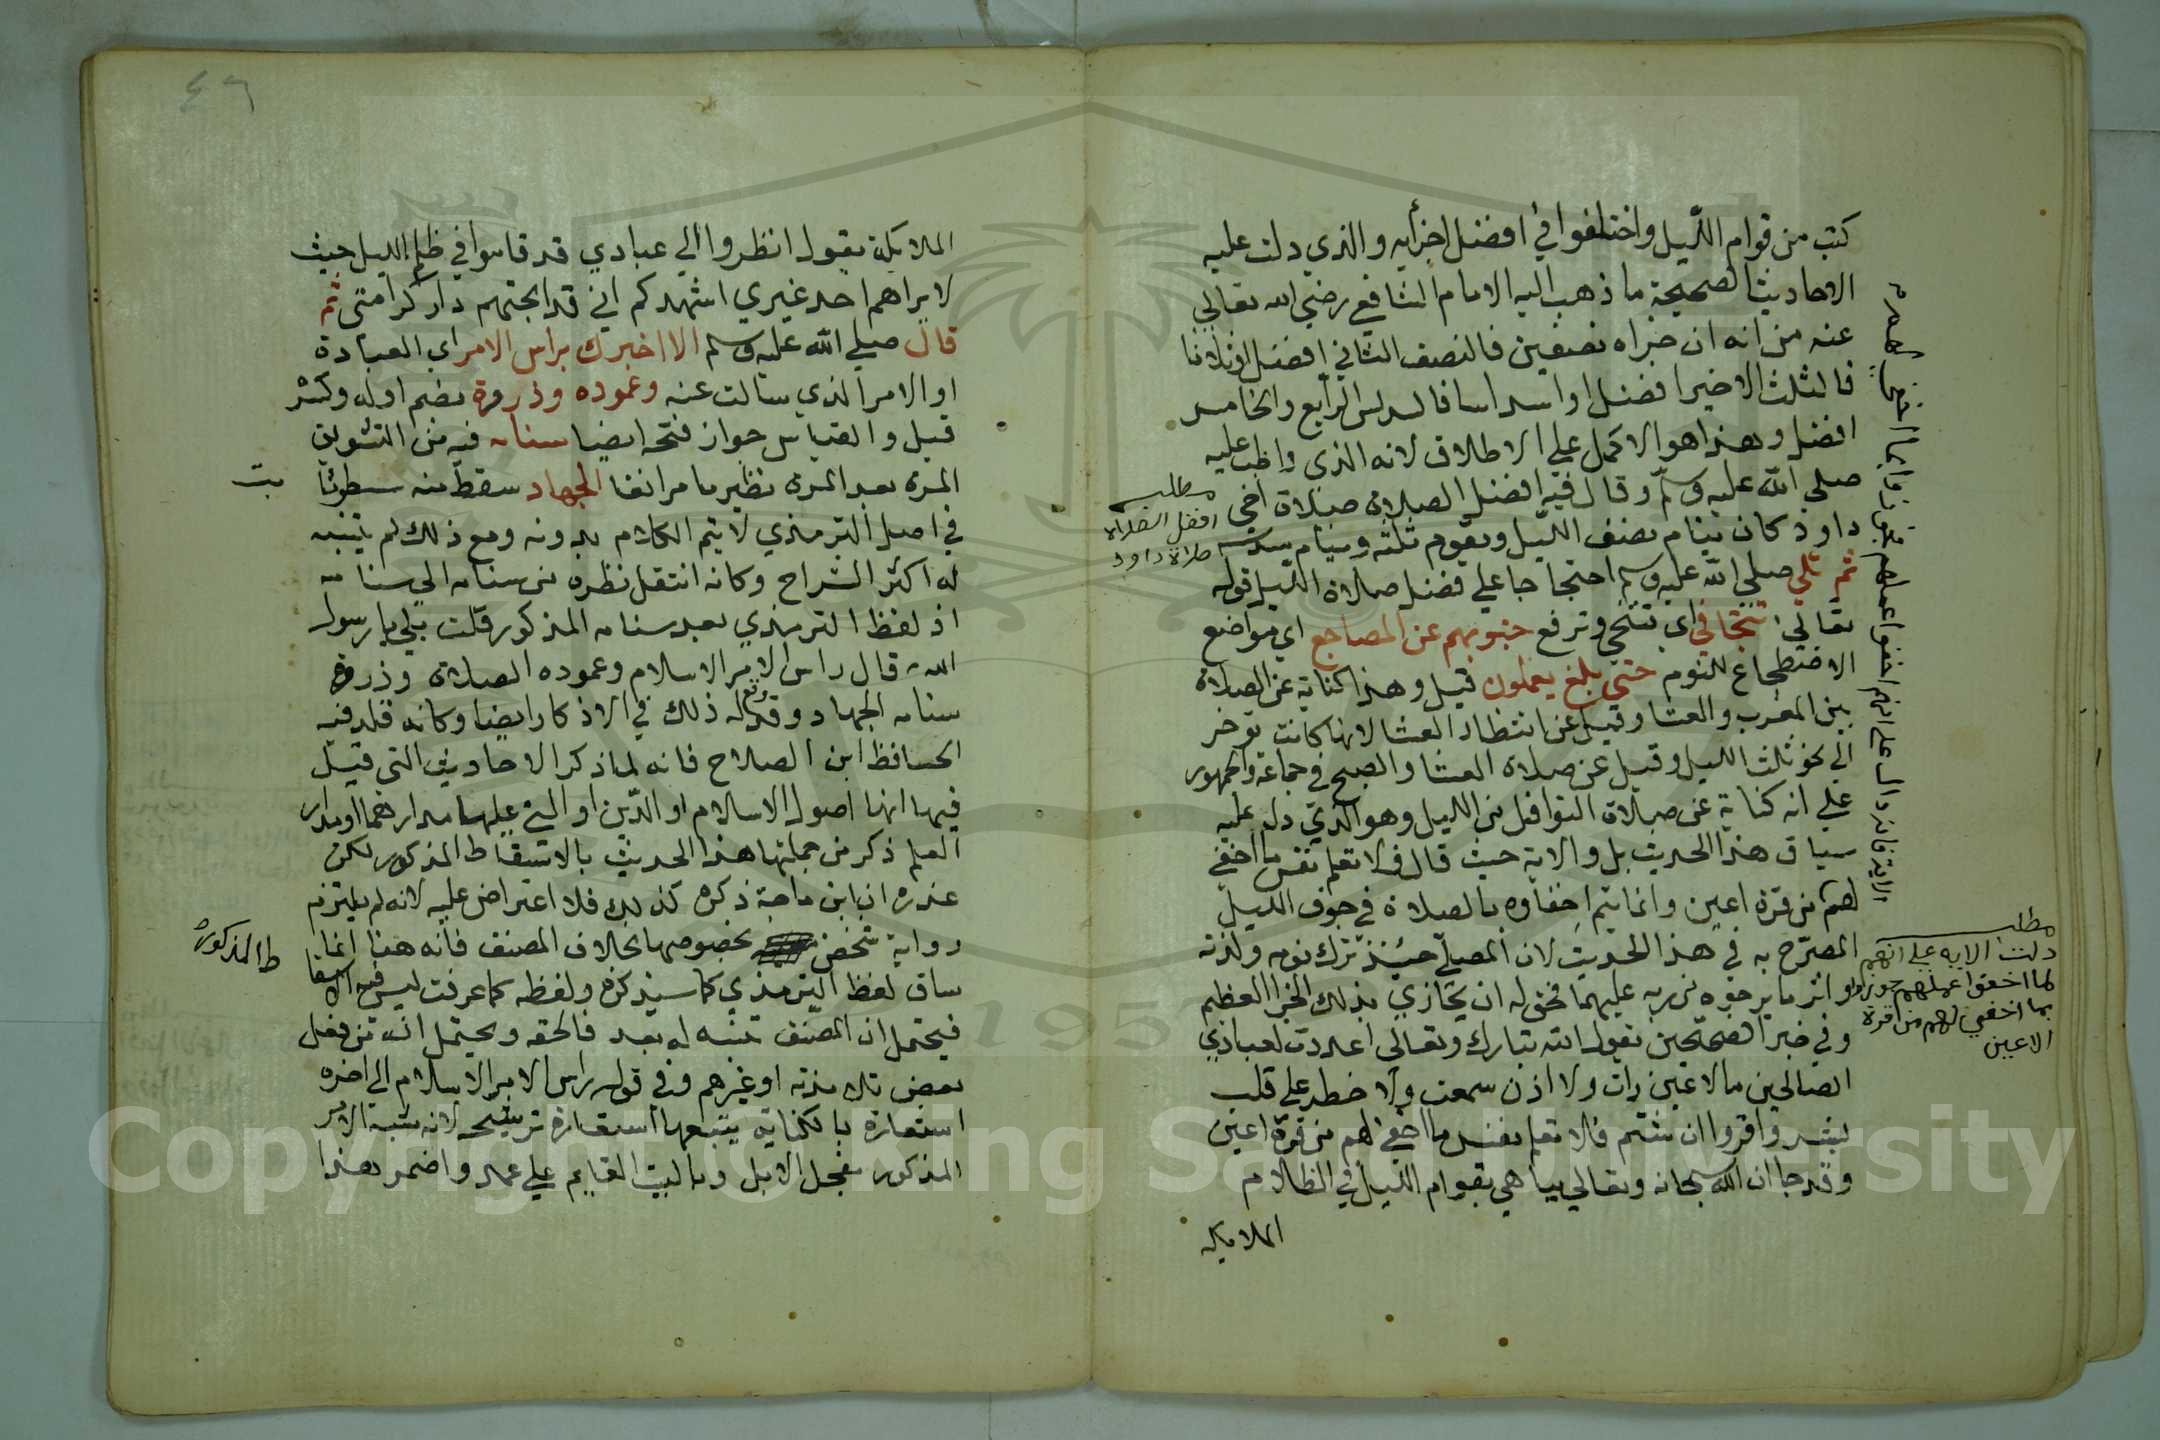 كتب من قوام الليل واختلفوا في افضل اجزايه والذي دلت عليه
الاحاديث الصحيحة ما ذهب اليه الامام الشافعي رضي الله تعالي
عنه من انه ان جزاه نصفين فالنصف الثاني افضل او ثلاثا
فالثلث الاخير افضل او اسداسا فالسدس الرابع والخامس
افضل وهذا هو الاكمل علي الاطلاق لانه الذي واظب عليه
صلي الله عليه وسلم وقال فيه افضل الصلاة صلاة اخي
داود كان ينام نصف الليل ويقوم ثلثه وينام سدسه
ثم تلي صلي الله عليه وسلم احتجاجا علي فضل صلاة الليل قوله
تعالي تتجافي اي تتنحي وترفع جنوبهم عن المضاجع اي مواضع
الاضطجاع للنوم حتي بلغ يعملون قيل وهذا كناية عن الصلاة
بين المغرب والعشا وقيل عن انتظار العشا لانها كانت توخر
الي نحو ثلث الليل وقيل عن صلاة العشا والصبح في جماعة والجمهور
علي انه كناية عن صلاة النوافل من الليل وهو الذي دل عليه
سياق هذا الحديث بل والاية حيث قال فلا تعلم نفس ما اخفي
لهم من قرة اعين وانما يتم اخفاوه بالصلاة في جوف الليل
المصرح به في هذا الحديث لان المصلي حينئذ ترك نومه ولذته
واثر ما يرجوه من ربه عليهما فحق له ان يجازي بذلك الجزا العظيم
وفي خبر الصحيحين يقول الله تبارك وتعالي اعددت لعبادي
الصالحين ما لا عين رات ولا اذن سمعت ولا خطر علي قلب
بشر واقروا ان شئتم فلا تعلم نفس ما اخفي لهم من قرة اعين
وقد جا ان الله سبحانه وتعالي يباهي بقوام الليل في الظلام
الملايكة
مطلب
افضل الصلاة
صلاة داود
مطلب
دلت الاية علي انهم
لما اخفوا عملهم جوزوا
بما اخفي لهم من قرة
الاعين
٤٦
الملايكة يقول انظروا الي عبادي قد قاموا في ظلم الليل حيث
لا يراهم احد غيري اشهدكم اني قد ابحتهم دار كرامتي ثم
قال صلي الله عليه وسلم الا اخبرك براس الامر اي العبادة
او الامر الذي سالت عنه وعموده وذروة بضم اوله وكسره
قيل والقياس جواز فتحه ايضا سنامه فيه من التشويق
المرة بعد المرة نظير ما مر انفا الجهاد سقط منه سطر ثابت
في اصل الترمذي لا يتم الكلام بدونه ومع ذلك لم يتنبه
له اكثر الشراح وكانه انتقل نظره من سنامه الي سنامه
اذ لفظ الترمذي بعد سنامه المذكور قلت بلي يا رسول
الله قال راس الامر الاسلام وعموده الصلاة وذروة
سنامه الجهاد وقد وقع له ذلك في الاذكار ايضا وكانه قلد فيه
الحافظ ابن الصلاح فانه لما ذكر الاحاديث التي قيل
فيها انها اصول الاسلام او الدين او التي عليها مدارهما او مدار
العلم ذكر من جملتها هذا الحديث بالاسقاط المذكور لكن
عذره ان ابن ماجة ذكره كذلك فلا اعتراض عليه لانه لم يلتزم
رواية شخص بخصوصها بخلاف المصنف فانه هنا انما
ساق لفظ الترمذي كما سيذكره ولفظه كما عرفت ليس فيه الاسقاط المذكور
فيحتمل ان المصنف تنبه له بعد فالحقه ويحتمل انه من فعل
بعض تلامذته او غيرهم وفي قوله راس الامر الاسلام الي اخره
استعارة بالكناية يتبعها استعارة ترشيحه لانه شبه الامر
المذكور بفحل الابل وبالبيت القايم علي عمد واضمر هذا